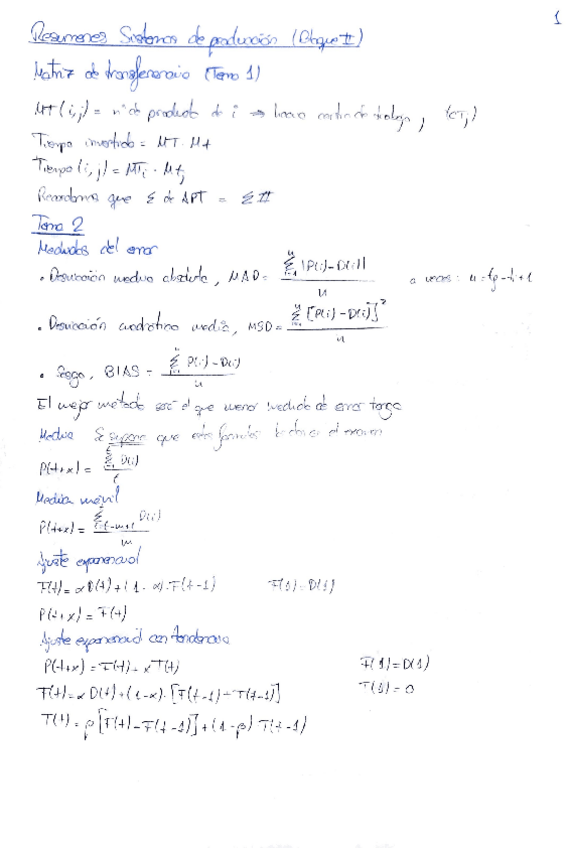 1
Resumenes Sistemas de producción (Bloque II)
Matriz de transferencia (Tema 1)
MT(i,j) = nº de producto de i ⇒ hacia centro de trabajo j (CTj)
Tiempo invertido = MT · Mt
Tiempo (i,j) = MTi · Mtj
Recordamos que Σ de APT = Σ II
Tema 2
Medidas del error
• Desviación media absoluta, MAD = Σ |P(i) - D(i)| / n a veces: n = tp - ti + 1
• Desviación cuadrática media, MSD = Σ [P(i) - D(i)]² / n
• Sesgo, BIAS = Σ P(i) - D(i) / n
El mejor método será el que menor medida de error tenga
Media Se supone que estas formulas te dan en el examen
P(t+x) = Σ D(i) / t
Media móvil
P(t+x) = Σ i=t-m+1 D(i) / m
Ajuste exponencial
F(t) = α D(t) + (1-α) · F(t-1) F(1) = D(1)
P(t+x) = F(t)
Ajuste exponencial con tendencia
P(t+x) = F(t) + xT(t) F(1) = D(1)
F(t) = α D(t) + (1-α) · [F(t-1) + T(t-1)] T(1) = 0
T(t) = β [F(t) - F(t-1)] + (1-β) T(t-1)